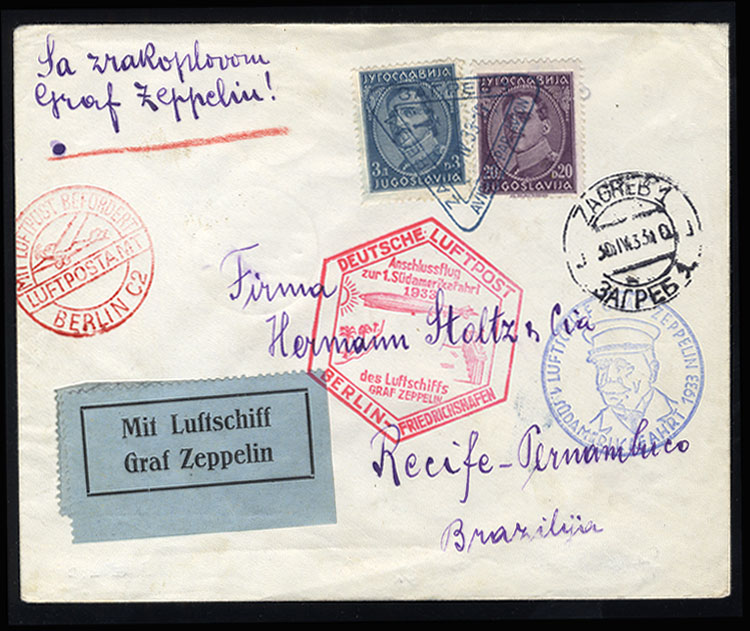 Sa zrakoplovom
Graf Zeppelin!
ЈУГОСЛАВИЈА
3Д Д3
JUGOSLAVIJA
ЈУГОСЛАВИЈА
20Д Д20
JUGOSLAVIJA
MIT LUFTPOST BEFÖRDERT
LUFTPOSTAMT
BERLIN C2
ZAGREB 1
ЗАГРЕБ 1
DEUTSCHE LUFTPOST
Anschlussflug
zur 1. Südamerikafahrt
1933
des Luftschiffs
GRAF ZEPPELIN
BERLIN-FRIEDRICHSHAFEN
Firma
Hermann Stoltz & Cia
ZEPPELIN
1. SÜDAMERIKAFAHRT 1933
Mit Luftschiff
Graf Zeppelin
Recife-Pernambuco
Brazilija